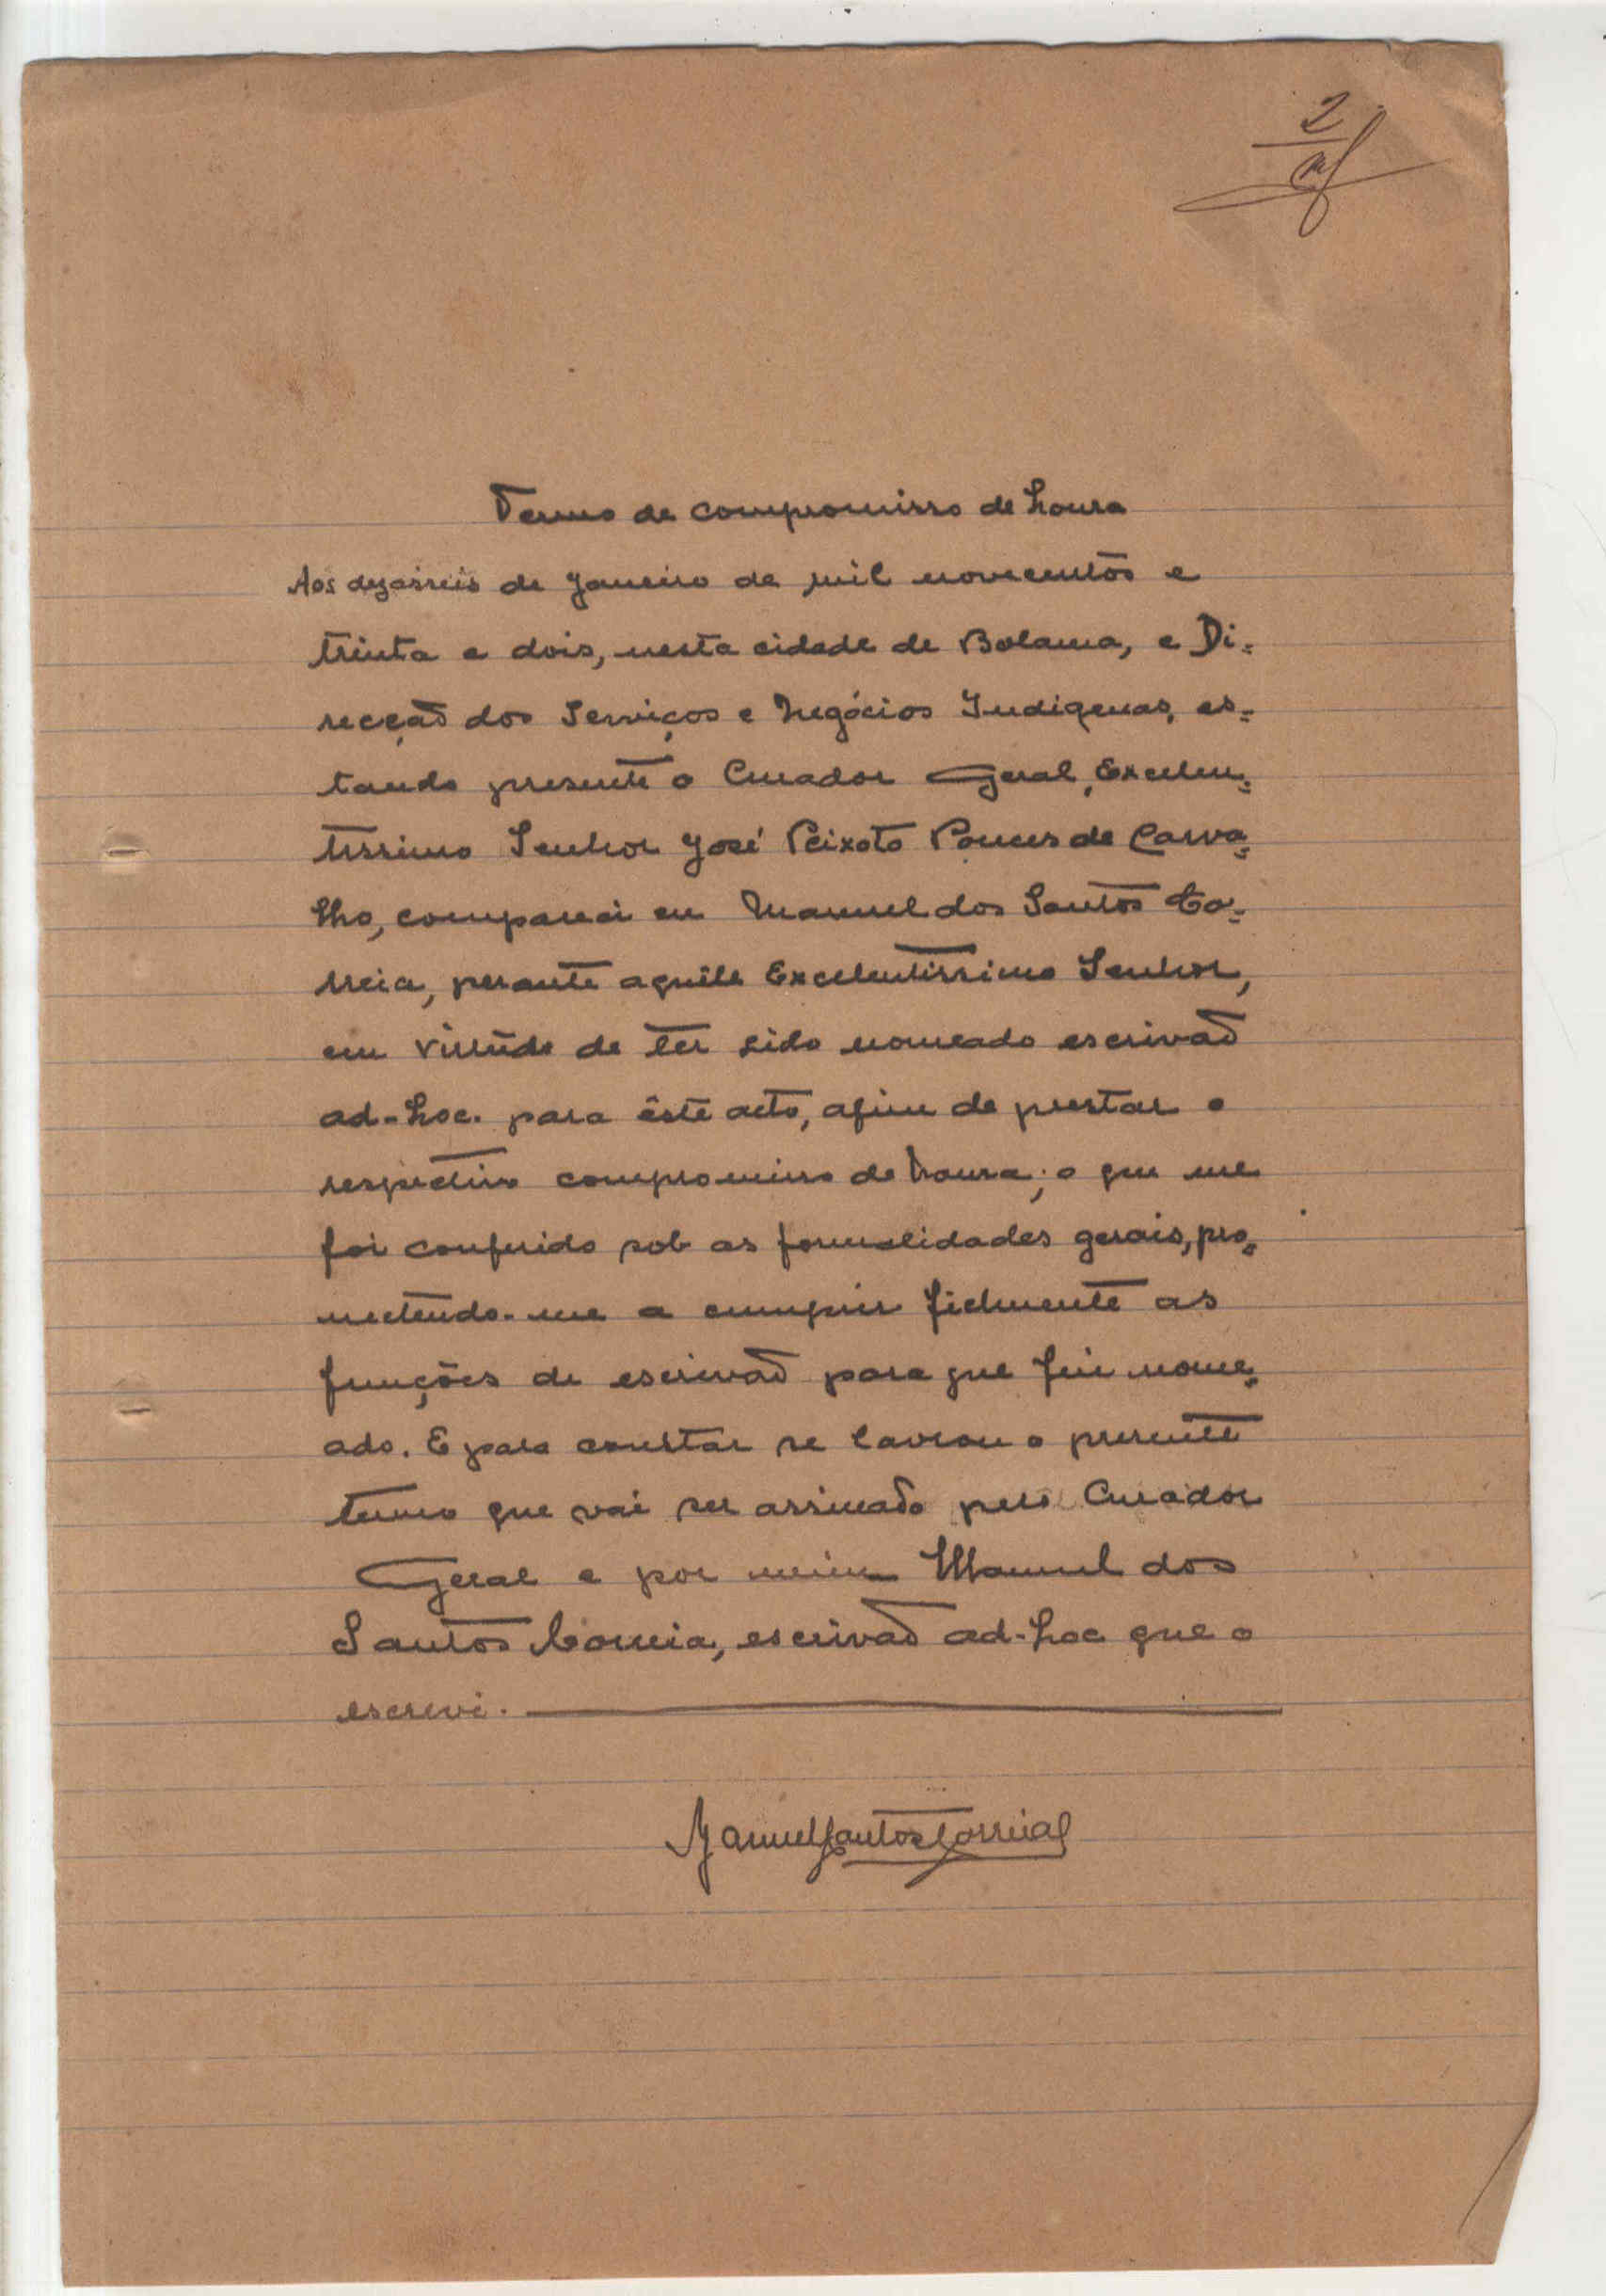 2
Termo de compromisso de honra
Aos dezasseis de Janeiro de mil novecentos e
trinta e dois, nesta cidade de Bolama, e Di=
recção dos Serviços e Negócios Indigenas, es=
tando presente o Curador Geral, Excelen=
tissimo Senhor José Peixoto Ponces de Carva=
lho, compareci eu Manuel dos Santos Co=
rreia, perante aquêle Excelentissimo Senhor,
em virtude de ter sido nomeado escrivão
ad-hoc. para êste acto, afim de prestar o
respectivo compromisso de honra; o que me
foi conferido sob as formalidades gerais, pro=
metendo-me a cumprir fielmente as
funções de escrivão para que fui nome=
ado. E para constar se lavrou o presente
termo que vai ser assinado pelo Curador
Geral e por mim Manuel dos
Santos Correia, escrivão ad-hoc que o
escrevi.
Manuel Santos Correia